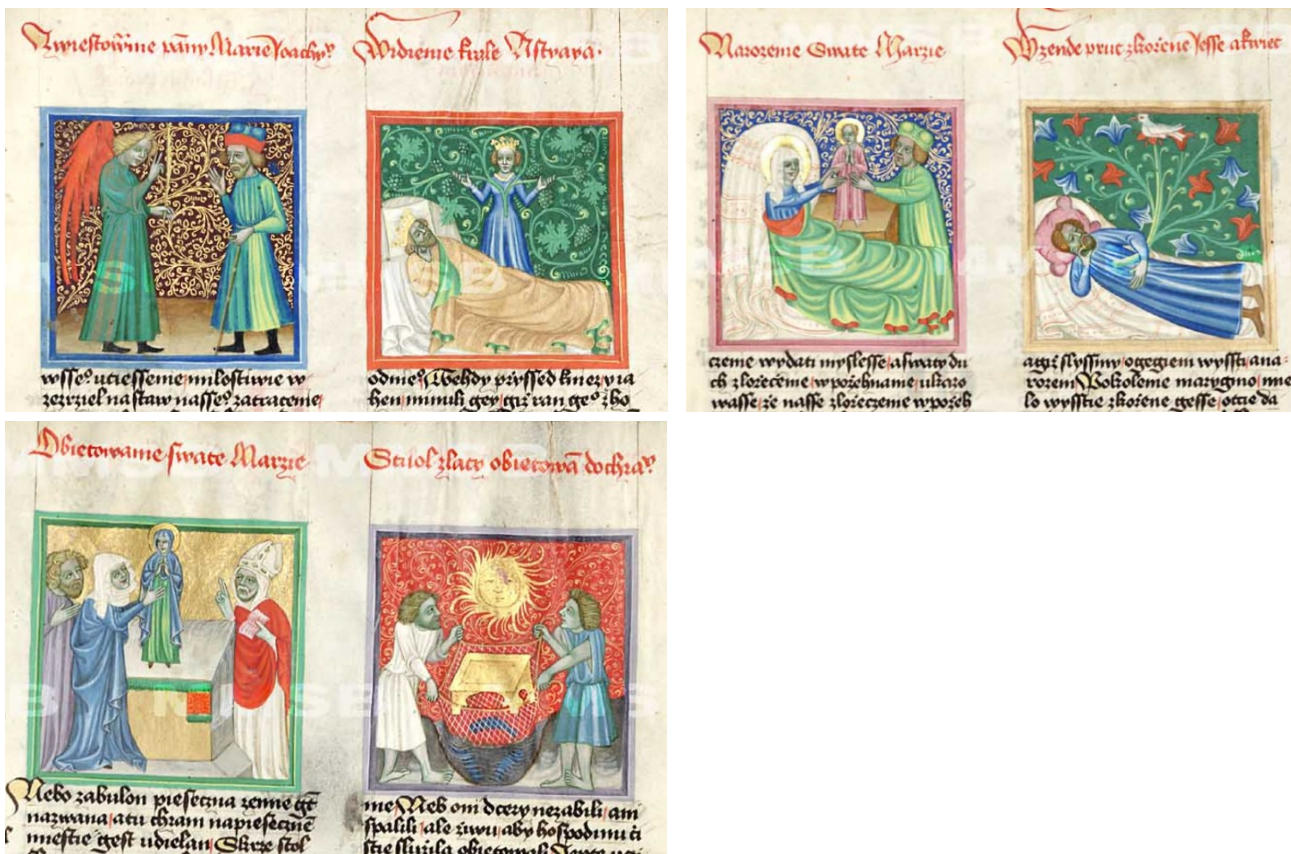 Zwiestowanie pany Marie Joachy
Widienie krale Astyaga
wsseo utiessenie milostiwie w
zezrziel na staw nasseo zatracenie
odnieo Wehdy przyssed knez yia
hen minuli gey giz ran geo zbo
Narozenie Swate Marzie
Wzende prut zkorzene Jesse akwiet
czenie wydati myslesse aswaty du
ch zlorzeczenie w pozehnanie ukazo
wasse ze nasse zlorzeczenie w pozeh
agiz slyssimy o gegiem wyssti ana
rozeni Pokolenie
lo wysstie zkorzene gesse
Obietowanie swate Marzie
Stuol zlaty obietowan dochra
Nebo zabulon pieseczna zemie gt
nazwana atu chram napiesecznē
miestie gest udielan Skrze stol
me Neb oni dcery nezabili ani
spalili ale ziwu aby hospodinu ti
stie sluzila obietowali